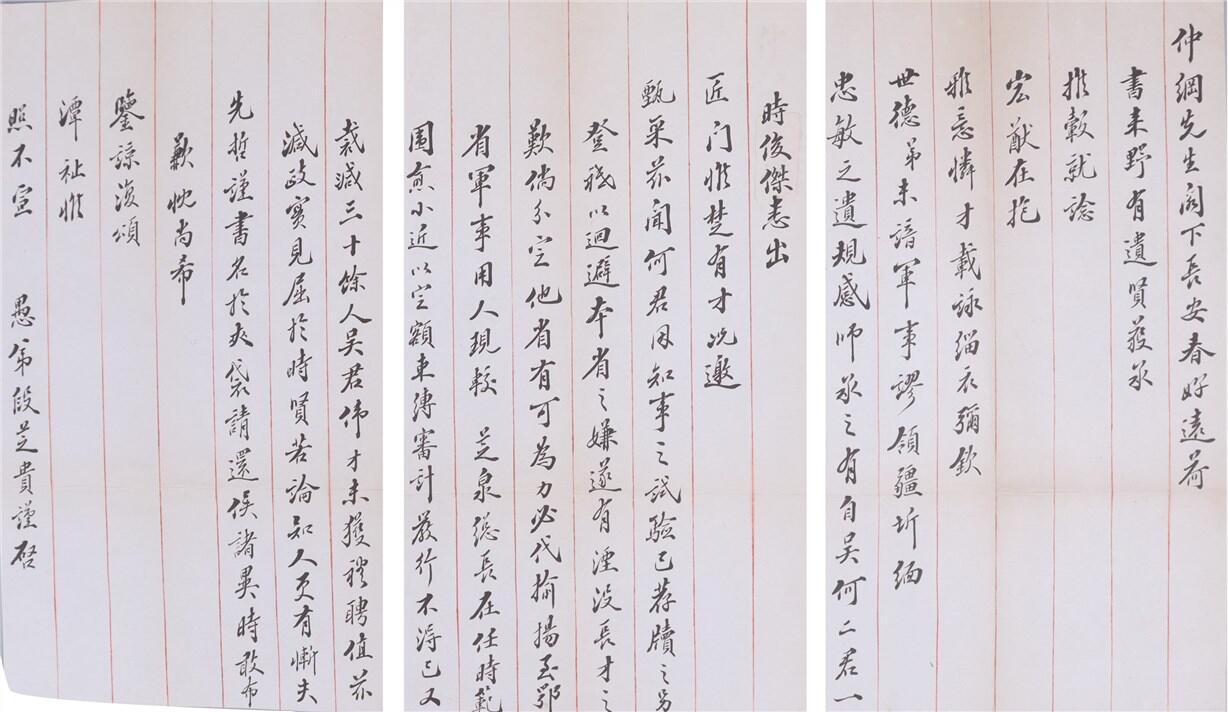 仲綱先生阁下長安春好遠荷
書来野有遺賢荩承
推毂就諗
宏猷在抱
雅意憐才載詠缁衣彌欽
世德弟未諳軍事謬領疆圻缅
忠敏之遺規感师承之有自吴何二君一
時俊傑悉出
匠门惟楚有才况邀
甄采兹闻何君因知事之試驗已荐牘之另
登衹以迴避本省之嫌遂有湮没長才之
歎倘分定他省有可為力必代揄揚至鄂
省軍事用人現較芝泉總長在任時範
围愈小近以定額束缚審計嚴行不得已又
裁减三十馀人吴君伟才未獲禮聘值兹
减政實見屈於時賢若論知人更有慚夫
先哲謹書名於夾袋請還俟諸異時敢布
歉忱尚希
鑒諒復頌
潭祉惟
照不宣 愚弟段芝貴謹启